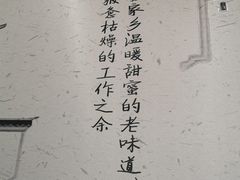 家乡温暖甜蜜的老味道、
枯燥的工作之余